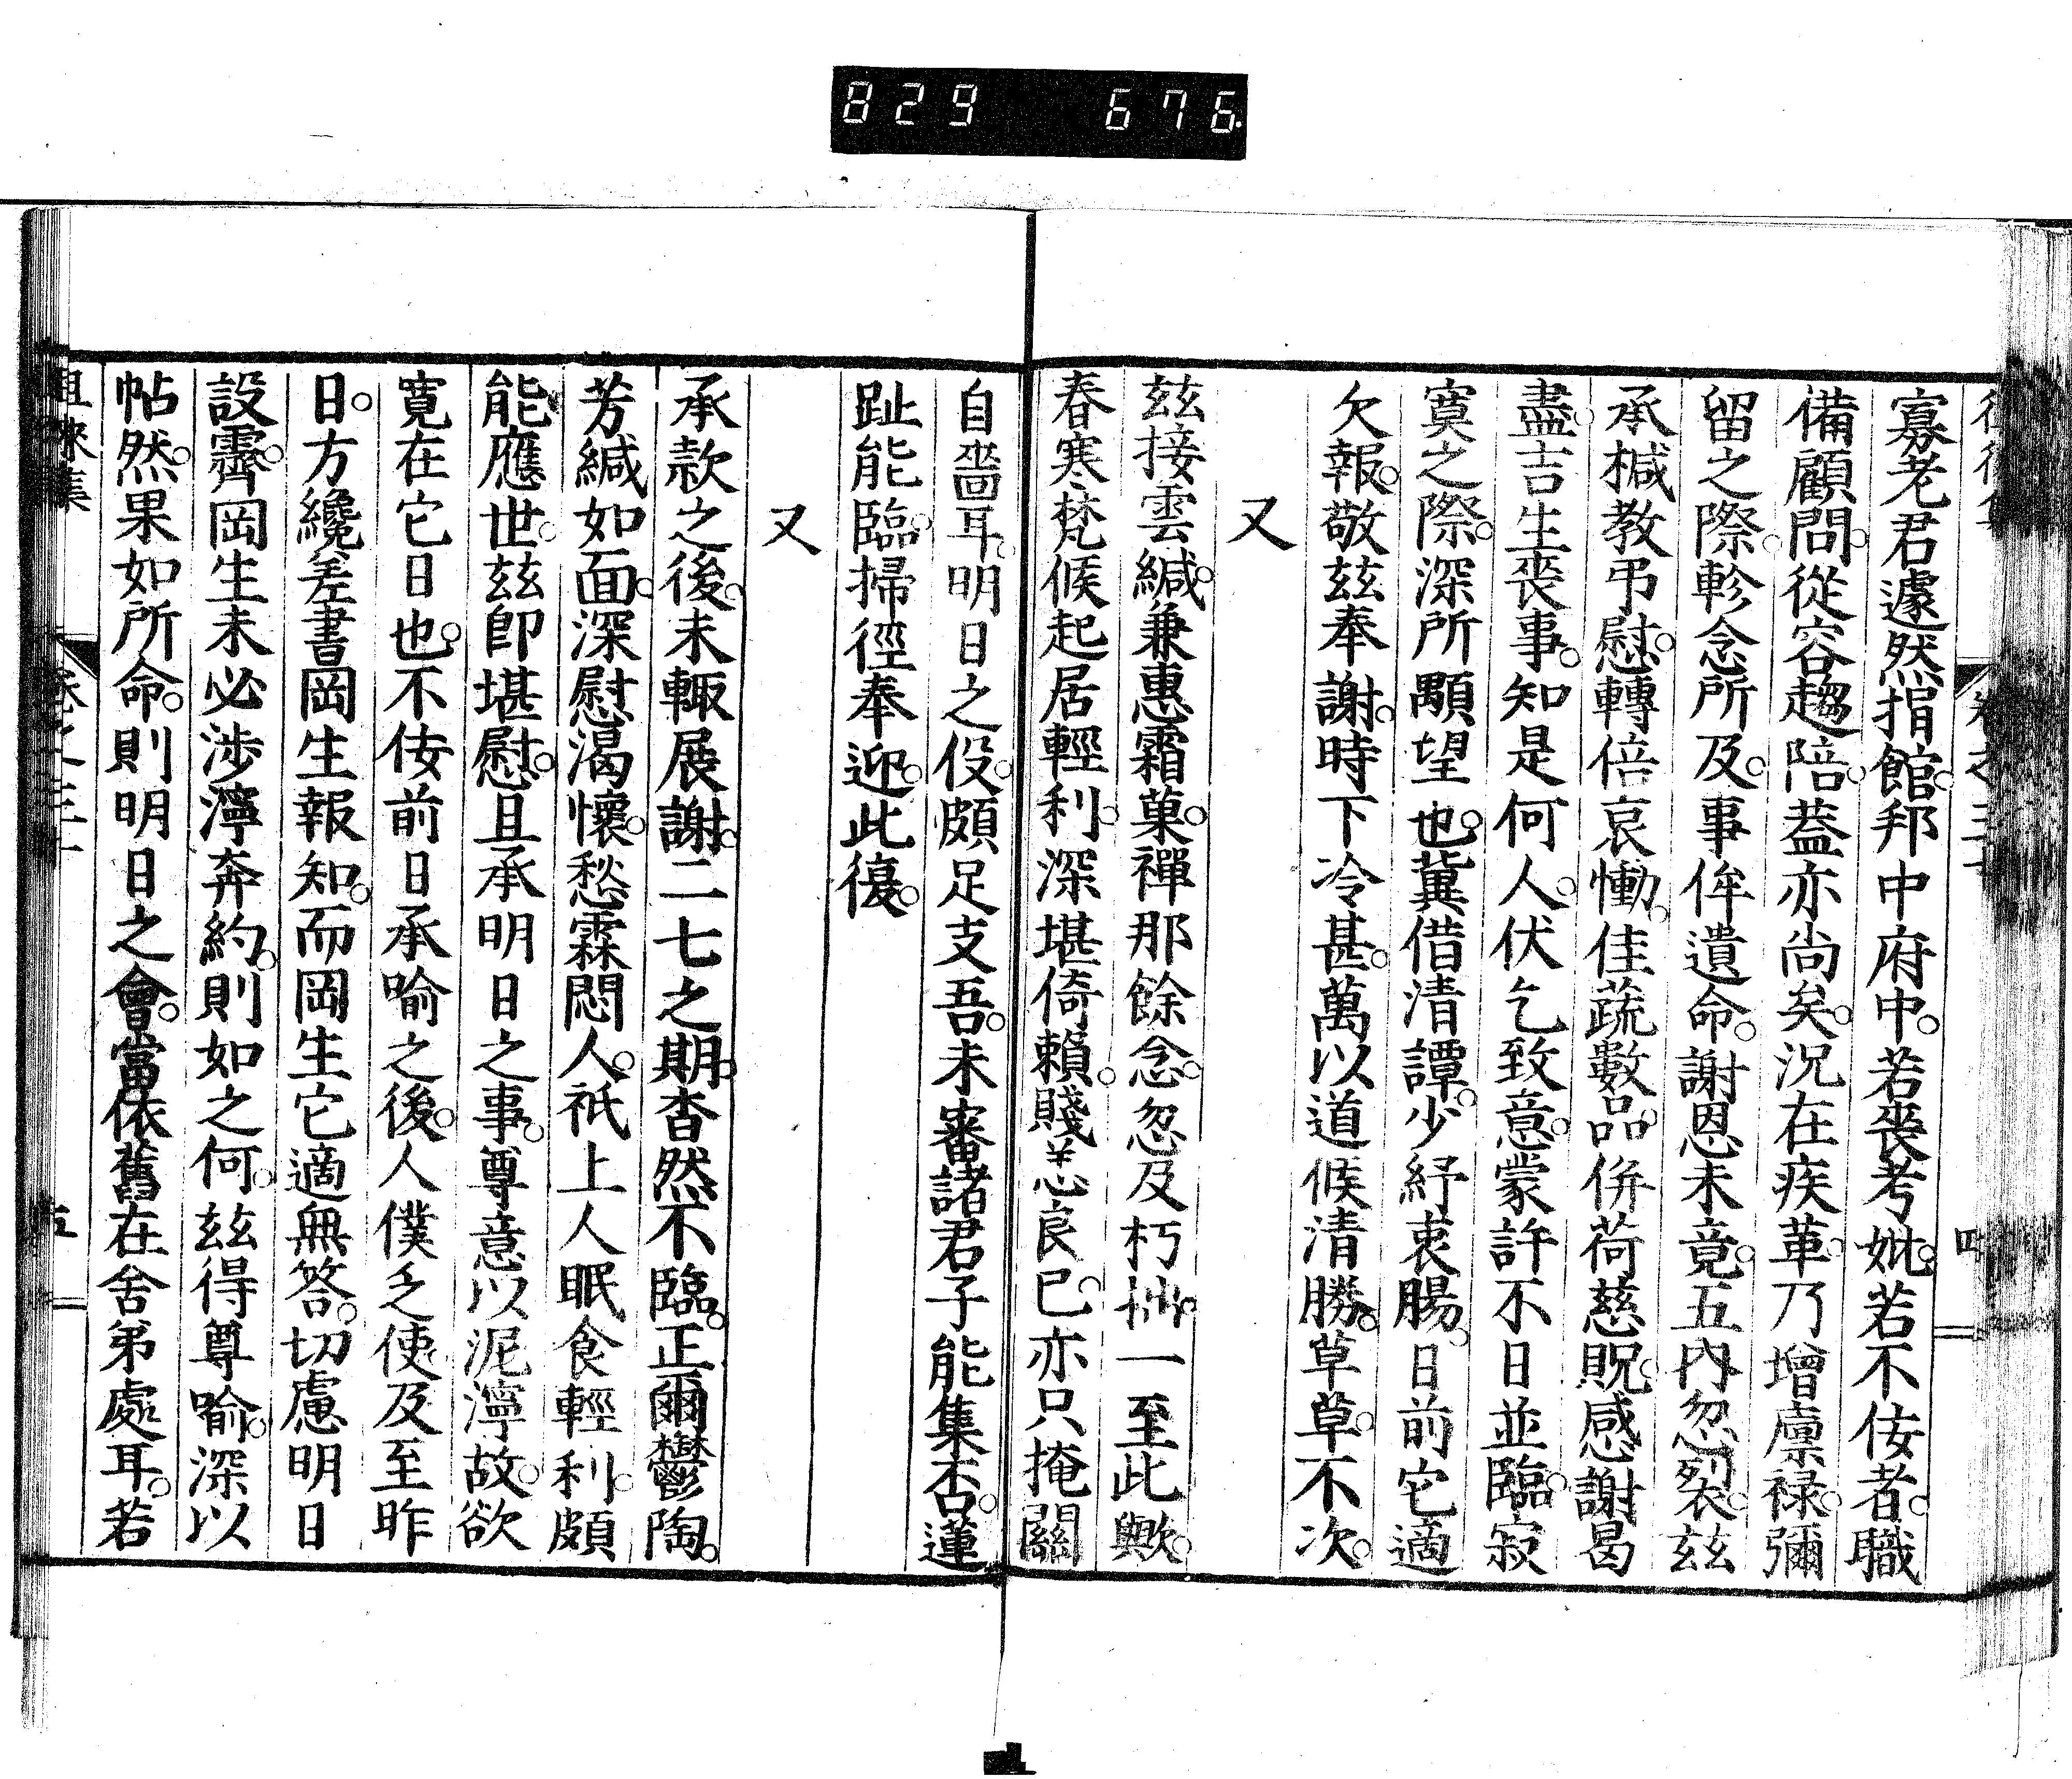 829 676
寡老君遽然捐館。邦中府中。若喪考妣。若不佞者。職
備顧問。從容趨陪。葢亦尚矣。況在疾革。乃增廩祿。彌
留之際。軫念所及。事侔遺命。謝恩未竟。五內忽裂。茲
承椷教弔慰。轉倍哀慟。佳蔬數品。併荷慈貺。感謝曷
盡。吉生喪事。知是何人。伏乞致意。蒙許不日並臨。寂
寞之際。深所顒望也。冀借清譚。少紓衷腸。日前它適
欠報。敬茲奉謝。時下冷甚。萬以道候清勝。草草。不次。
又
茲接雲緘。兼惠霜菓。禪那餘念。忽及朽拙。一至此歟。
春寒梵候起居輕利。深堪倚賴。賤恙良已。亦只掩關
自嗇耳。明日之役。頗足支吾。未審諸君子能集否。蓮
趾能臨。掃徑奉迎。此復。
又
承款之後。未輙展謝。二七之期。杳然不臨。正爾鬱陶。
芳緘如面。深慰渴懷。愁霖悶人。祇上人眠食輕利。頗
能應世。茲卽堪慰。且承明日之事。尊意以泥濘故。欲
寬在它日也。不佞前日承喻之後。人僕乏使。及至昨
日。方纔差書岡生報知。而岡生它適無答。切慮明日
設霽。岡生未必涉濘奔約。則如之何。茲得尊喻。深以
帖然。果如所命。則明日之會。當依舊在舍弟處耳。若
徂徠集
卷之三十
四
五